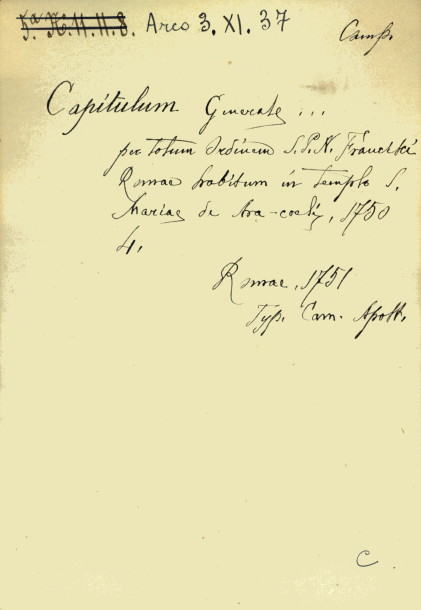 5.a H.11.11.8. Arco 3. XI. 37
Camp.
Capitulum Generale ...
per totum Ordinem S. P. N. Francisci
Romae habitum in templo S.
Mariae de Ara-coeli, 1750
4.
Romae, 1751
Typ. Cam. Apost.
C